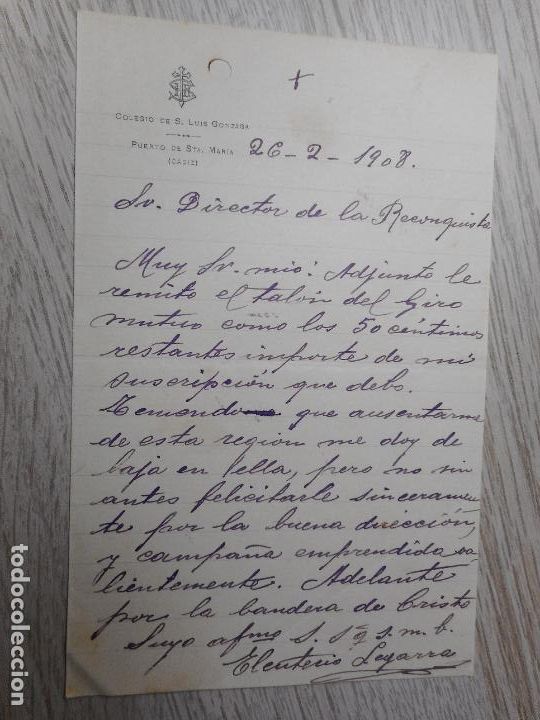 +
COLEGIO DE S. LUIS GONZAGA
PUERTO DE STA. MARIA
(CADIZ)
26-2-1908.
Sr. Director de la Reconquista
Muy Sr. mio: Adjunto le
remito el talón del Giro
mutuo como los 50 céntimos
restantes importe de mi
suscripción que debo.
Temendo que ausentarme
de esta región me doy de
baja en ella, pero no sin
antes felicitarle sinceramen
te por la buena dirección,
y campaña emprendida va-
lientemente. Adelante
por la bandera de Cristo
Suyo afmo S. S. q. s. m. b.
Eleuterio Legarra
todocoleccion